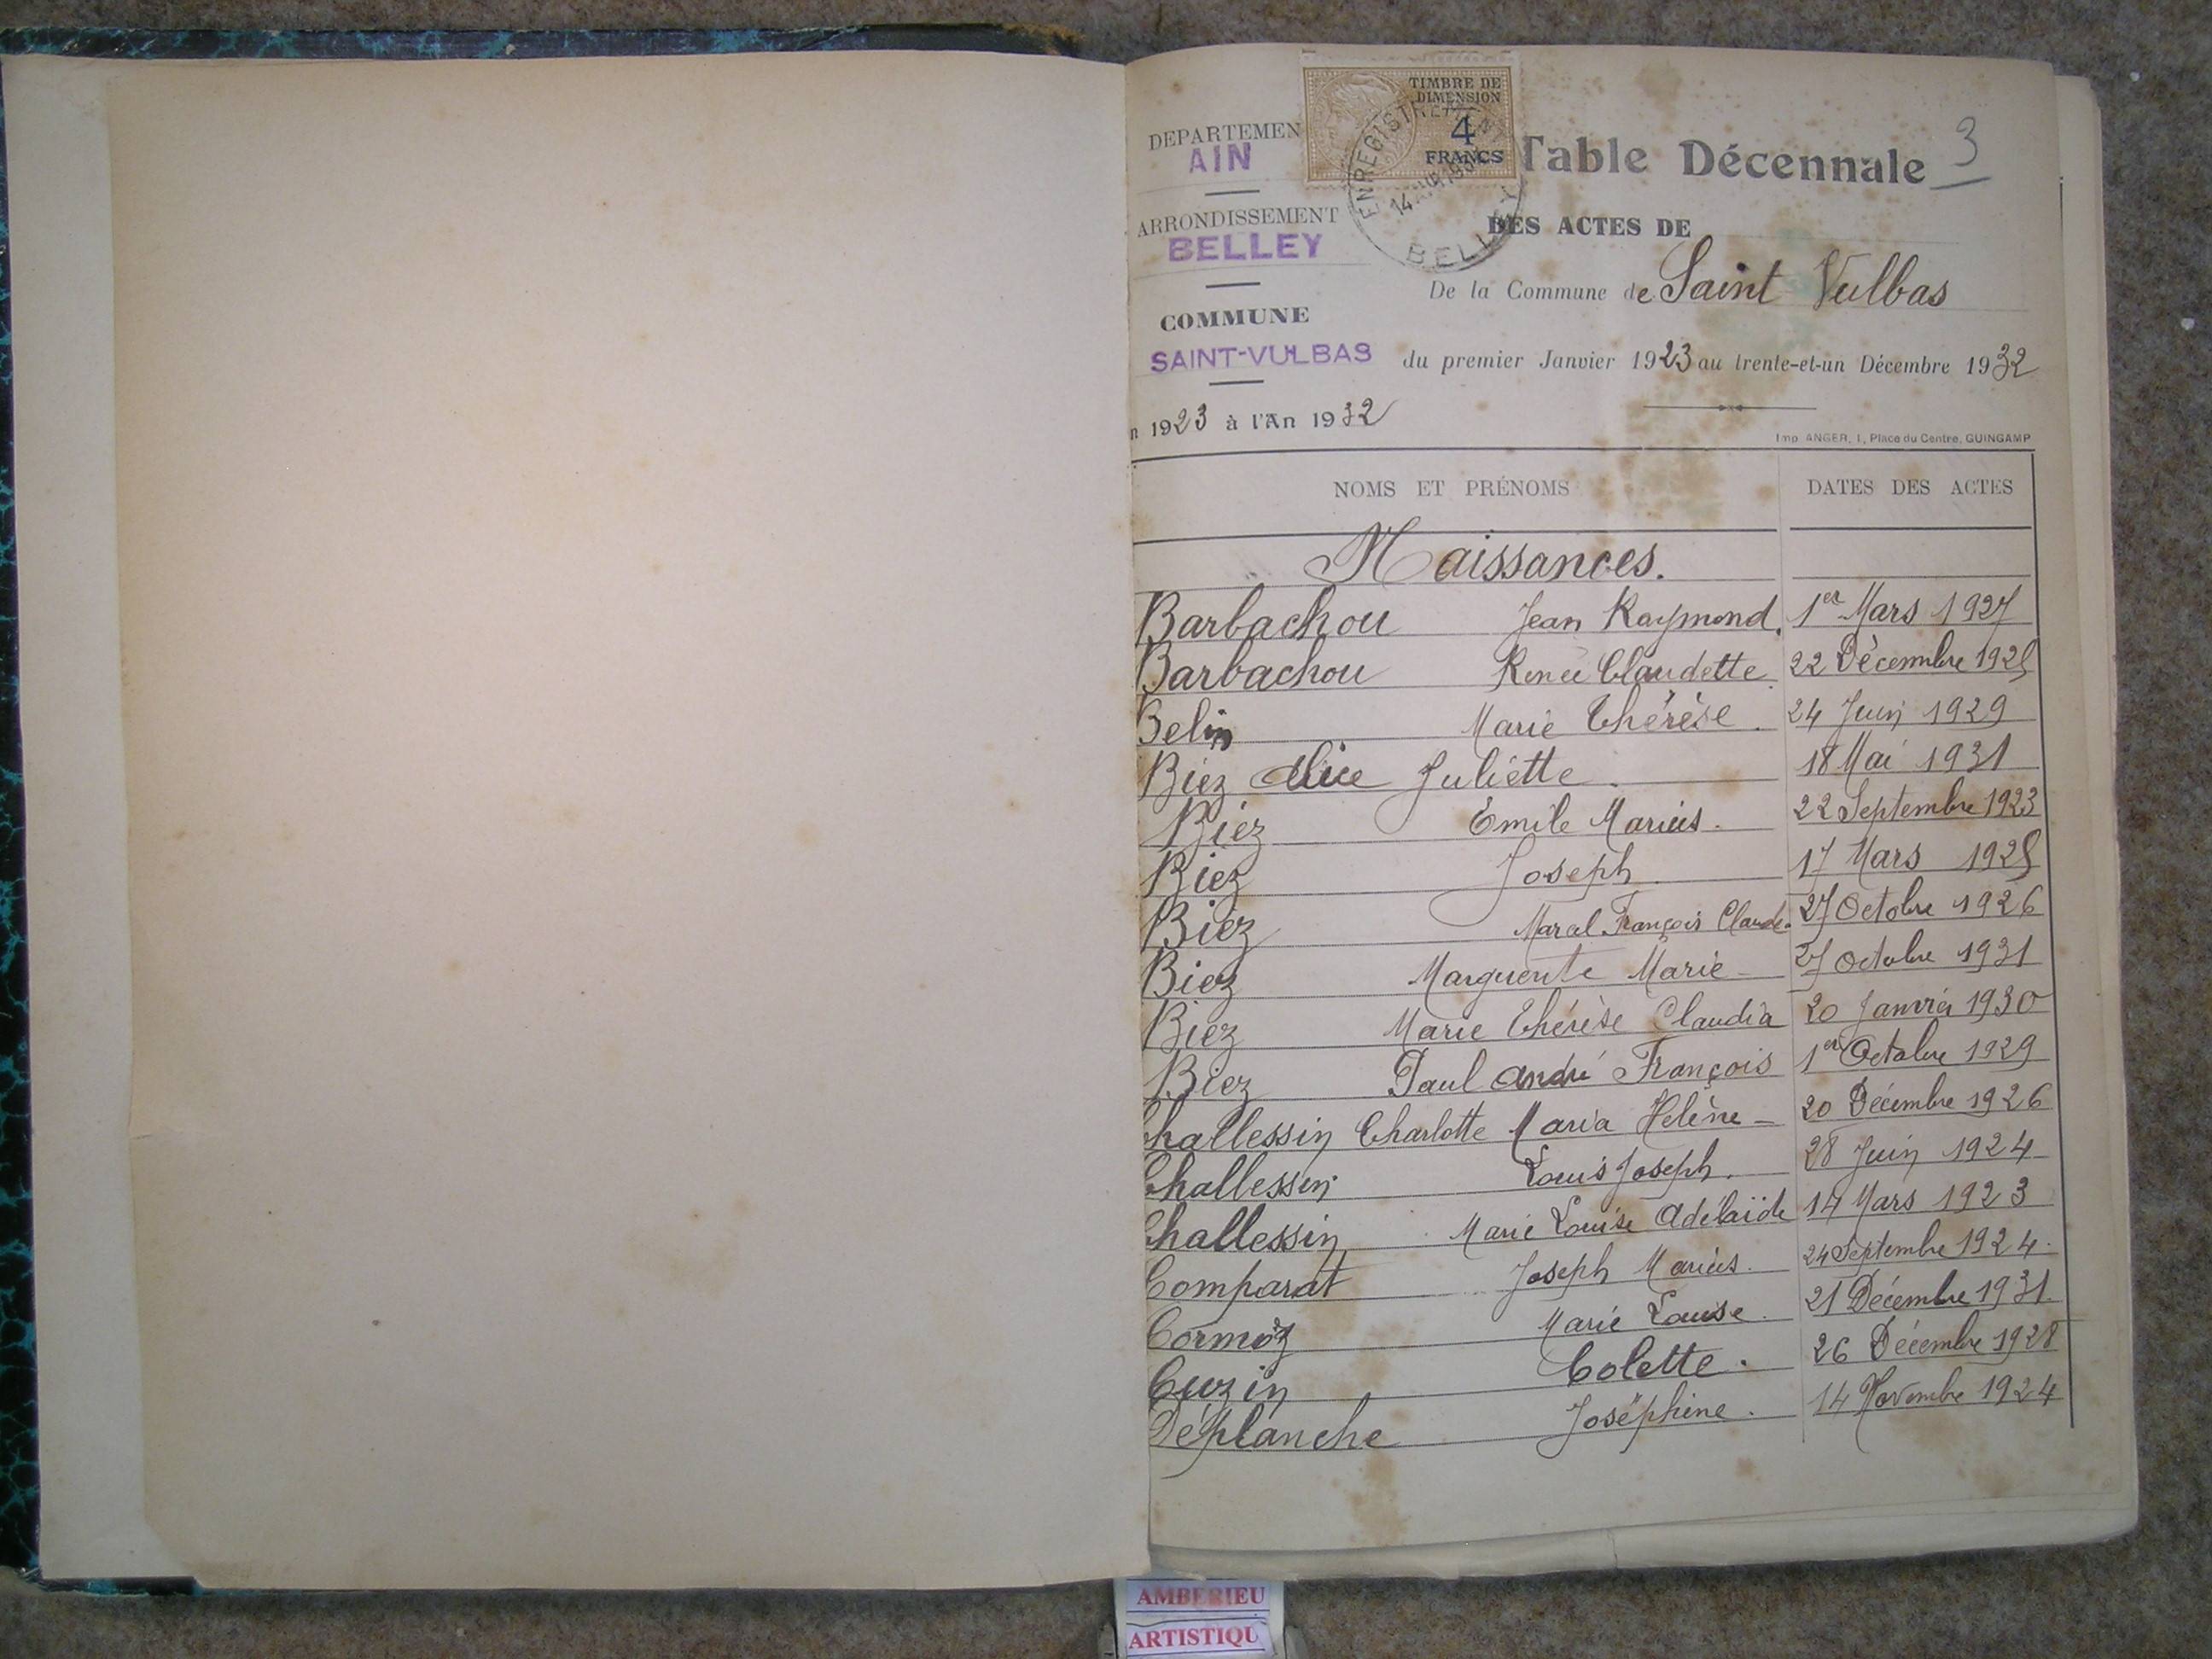 TIMBRE DE
DIMENSION
4
FRANCS
ENREGISTREMENT
14
BELLEY
DEPARTEMEN
AIN
Table Décennale 3
ARRONDISSEMENT
BELLEY
DES ACTES DE
De la Commune de Saint Vulbas
COMMUNE
SAINT-VULBAS
du premier Janvier 1923 au trente-et-un Décembre 1932
n 1923 à l'An 1932
Imp. ANGER, 1, Place du Centre, GUINGAMP
NOMS ET PRÉNOMS DATES DES ACTES
Naissances.
Barbachou Jean Raymond. 1er Mars 1927
Barbachou Renée Claudette. 22 Décembre 1925
Belin Marie Thérèse. 24 Juin 1929
Biez Alice Juliette. 18 Mai 1931
Biez Émile Marius. 22 Septembre 1923
Biez Joseph. 17 Mars 1925
Biez François Claude. 27 Octobre 1926
Biez Marguerite Marie 27 Octobre 1931
Biez Marie Thérèse Claudia 20 Janvier 1930
Biez Paul André François 1er Octobre 1929
Challessin Charlotte Maria Helène - 20 Décembre 1926
Challessin Louis Joseph. 28 Juin 1924
Challessin Marie Louise Adélaïde 14 Mars 1923
Comparat Joseph Marius. 24 Septembre 1924.
Cormoz Marie Louise. 21 Décembre 1931.
Cuzin Colette. 26 Décembre 1928
Déplanche Joséphine. 14 Novembre 1924
AMBERIEU
ARTISTIQU